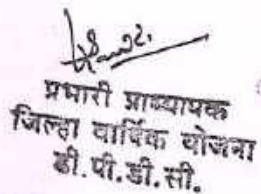 प्रभारी प्राध्यापक
जिल्हा वार्षिक योजना
डी.पी.डी.सी.